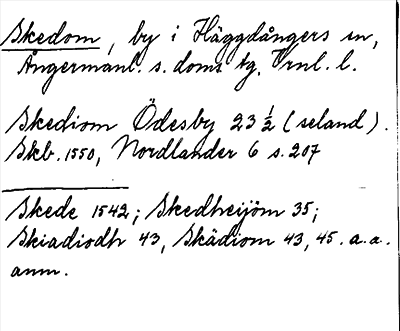 Skedom, by i Häggdångers sn,
Ångermanl. s. doms tg. Vrnl. l.
Skediom Ödesby 23 ½ (seland).
Skb. 1550, Nordlander 6 s. 207
Skede 1542; Skedheijöm 35;
Skiadiodh 43, Skädiom 43, 45. a.a.
anm.